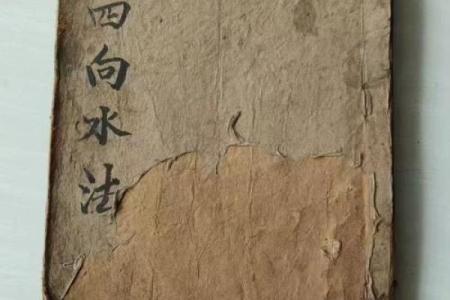 四向水法